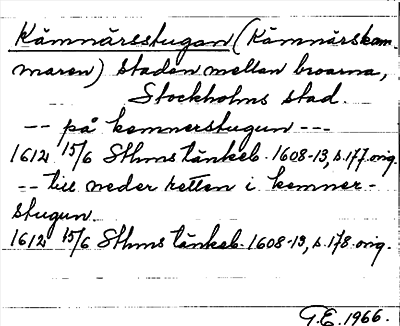 Kämnärsstugan (Kämnärskam-
maren) Staden mellan broarna,
Stockholms stad.
-- på kemnerstugun ---
1612 15/6 Sthms tänkeb. 1608-13, s. 177 orig.
-- till neder retten i kemner-
stugun
1612 15/6 Sthms tänkeb. 1608-13, s. 178 orig.
G.E. 1966.